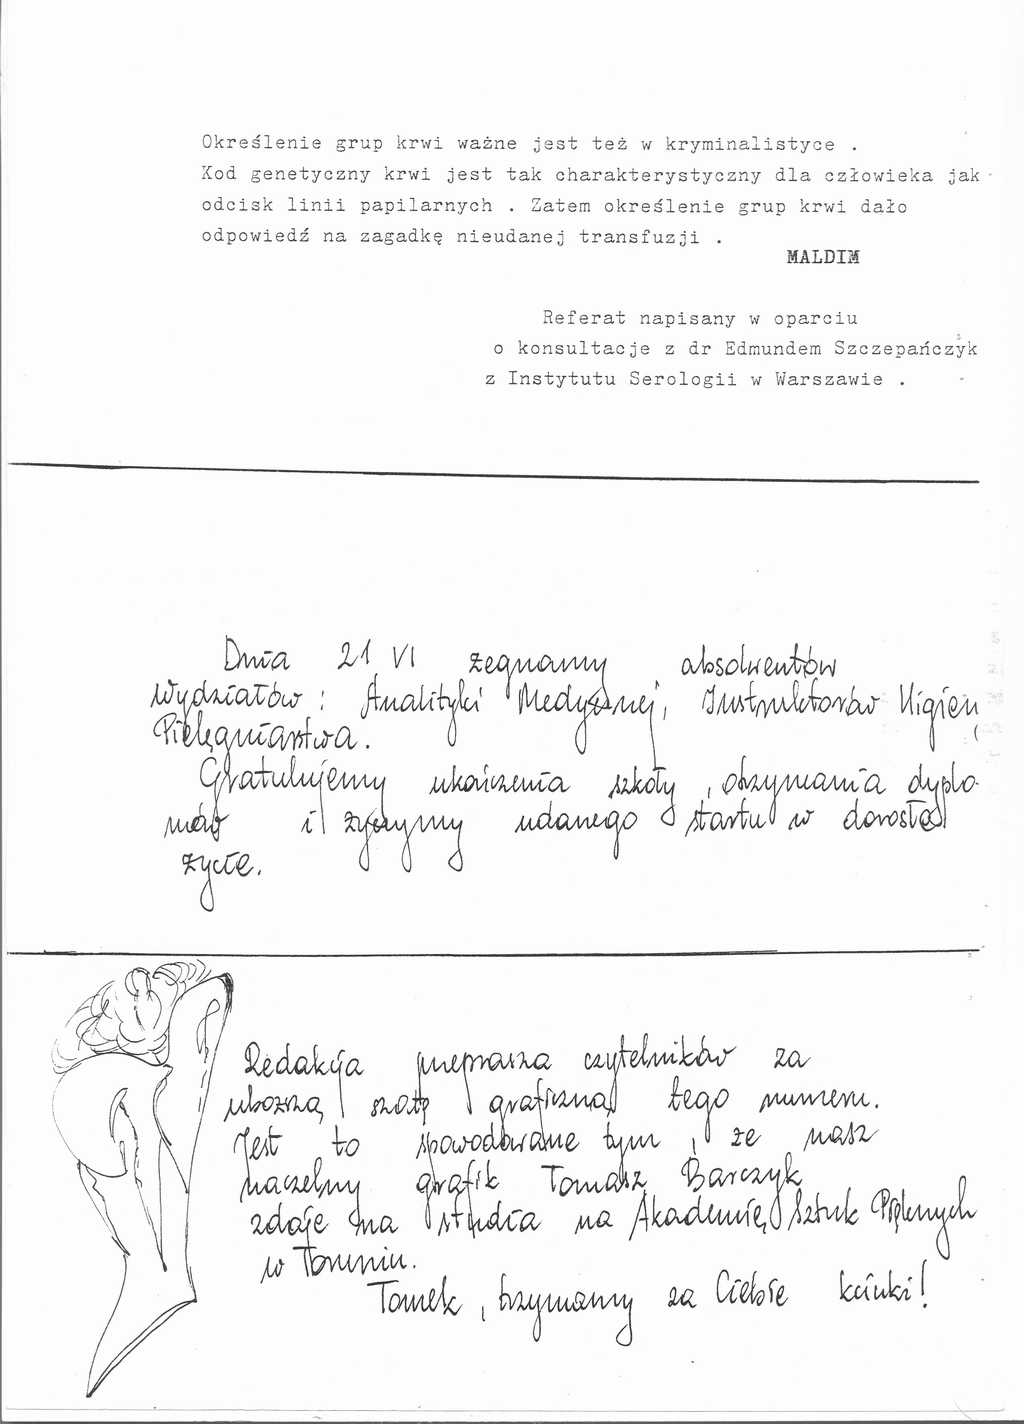 Określenie grup krwi ważne jest też w kryminalistyce .
Kod genetyczny krwi jest tak charakterystyczny dla człowieka jak
odcisk linii papilarnych . Zatem określenie grup krwi dało
odpowiedź na zagadkę nieudanej transfuzji .
MALDIM
Referat napisany w oparciu
o konsultacje z dr Edmundem Szczepańczyk
z Instytutu Serologii w Warszawie .
Dnia 21 VI żegnamy absolwentów
Wydziałów : Analityki Medycznej, Instruktorów Higieny,
Pielęgniarstwa.
Gratulujemy ukończenia szkoły, otrzymania dyplo-
mów i życzymy udanego startu w dorosłe
życie.
Redakcja przeprasza czytelników za
uboższą szatę graficzną tego numeru.
Jest to spowodowane tym, że nasz
naczelny grafik Tomasz Barczyk
zdaje na studia na Akademię Sztuk Pięknych
w Toruniu.
Tomek, trzymamy za Ciebie kciuki!